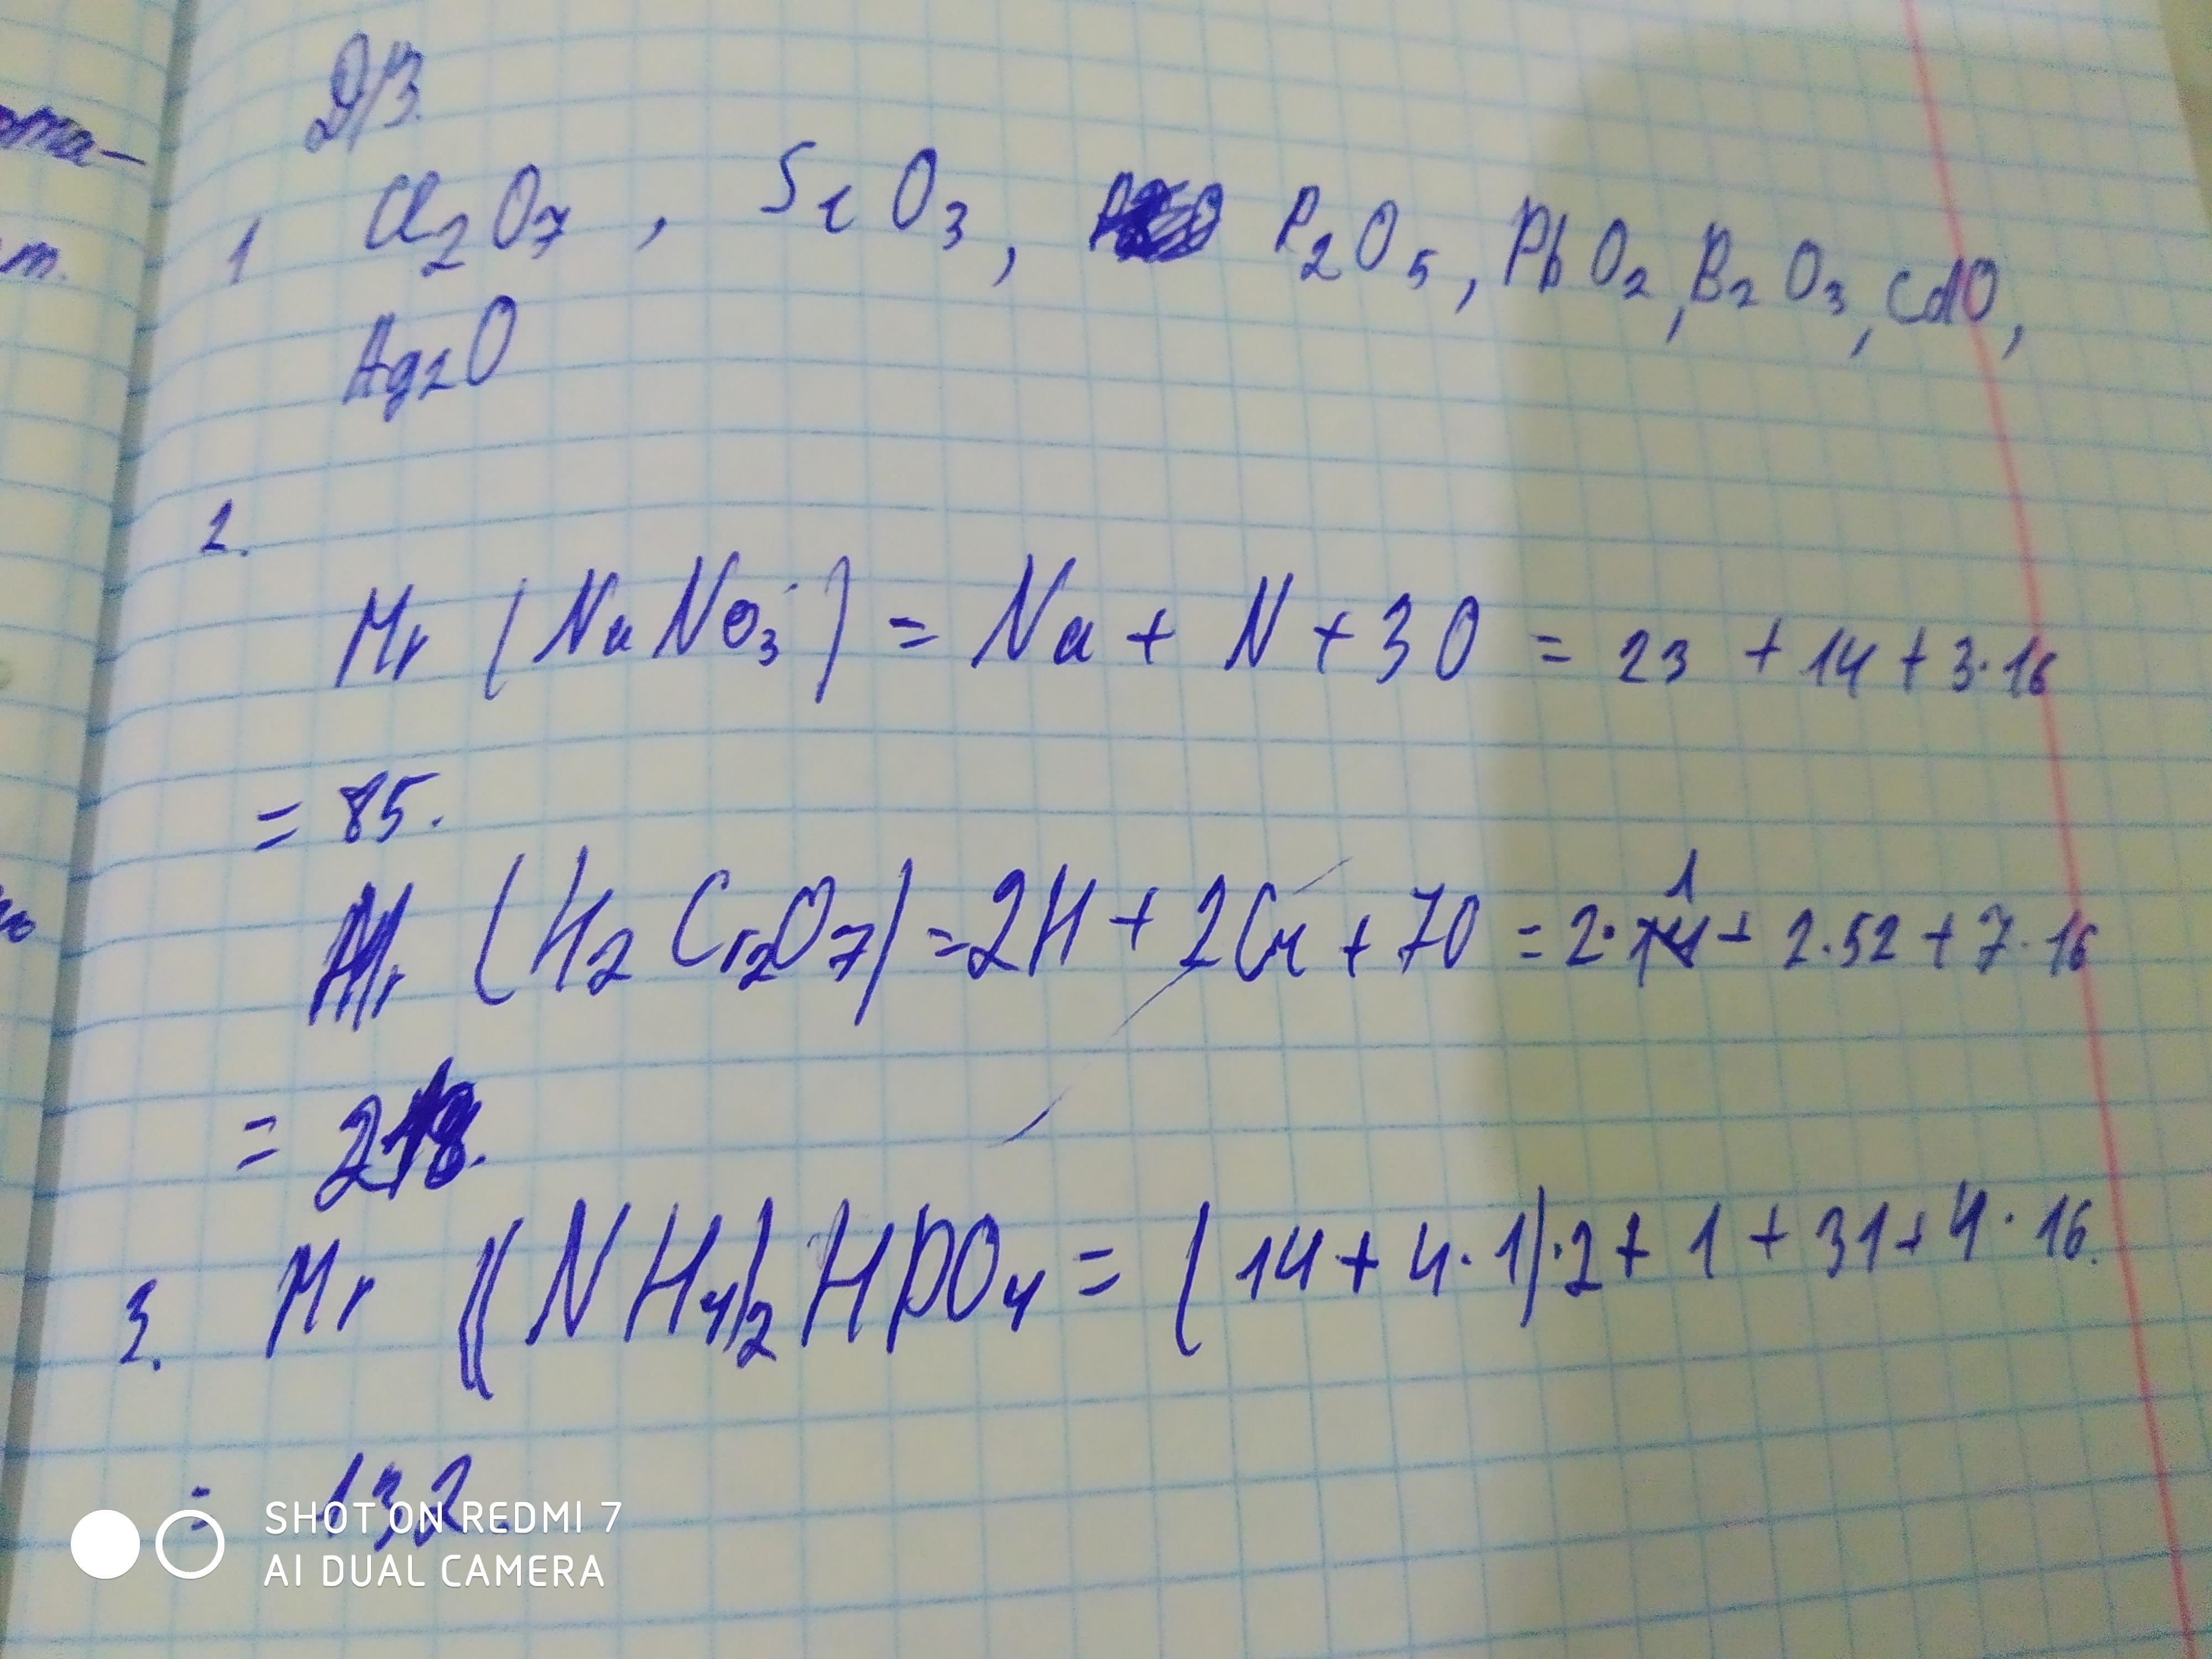 Д/З.
1 Cl₂O₇, SeO₃, P₂O₅, PbO₂, B₂O₃, CdO,
Ag₂O
2.
Mr (NaNO₃) = Na + N + 3O = 23 + 14 + 3·16
= 85.
Mr (H₂Cr₂O₇) = 2H + 2Cr + 7O = 2·1 + 2·52 + 7·16
= 218.
3. Mr ((NH₄)₂HPO₄ = (14 + 4·1)·2 + 1 + 31 + 4·16.
= 132.
SHOT ON REDMI 7
AI DUAL CAMERA